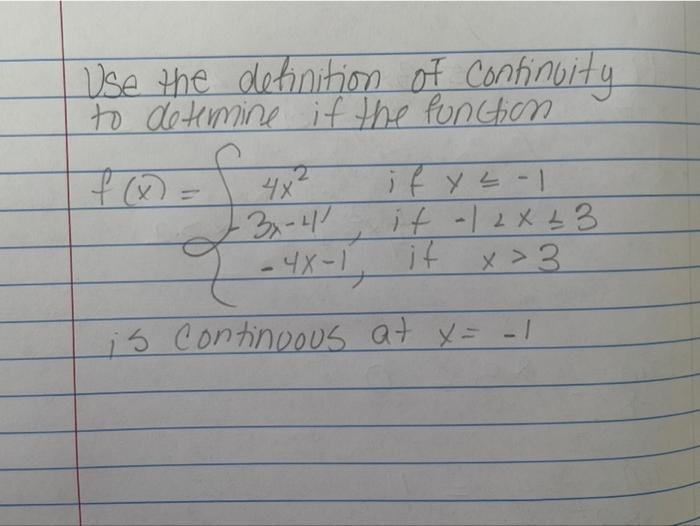 Use the definition of continuity
to determine if the function
f(x) = { 4x² if x ≤ -1
-3x-4, if -1 < x ≤ 3
-4x-1, if x > 3
is continuous at x = -1